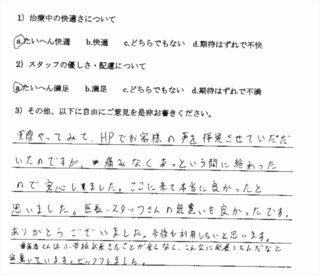 1）治療中の快適さについて
a.たいへん快適 b.快適 c.どちらでもない d.期待はずれで不快
2）スタッフの優しさ・配慮について
a.たいへん満足 b.満足 c.どちらでもない d.期待はずれで不満
3）その他、以下に自由にご意見を是非お書きください。
実際やってみて、HPでお客様の声を拝見させていただ
いたのですが、痛みなくあっという間に終わった
ので安心しました。ここに来て本当に良かったと
思いました。院長・スタッフさんの気遣いも良かったです。
ありがとうございました。今後も利用したいと思います。
歯医者さんは小学校以来きたことが
ています。ビックリしました。